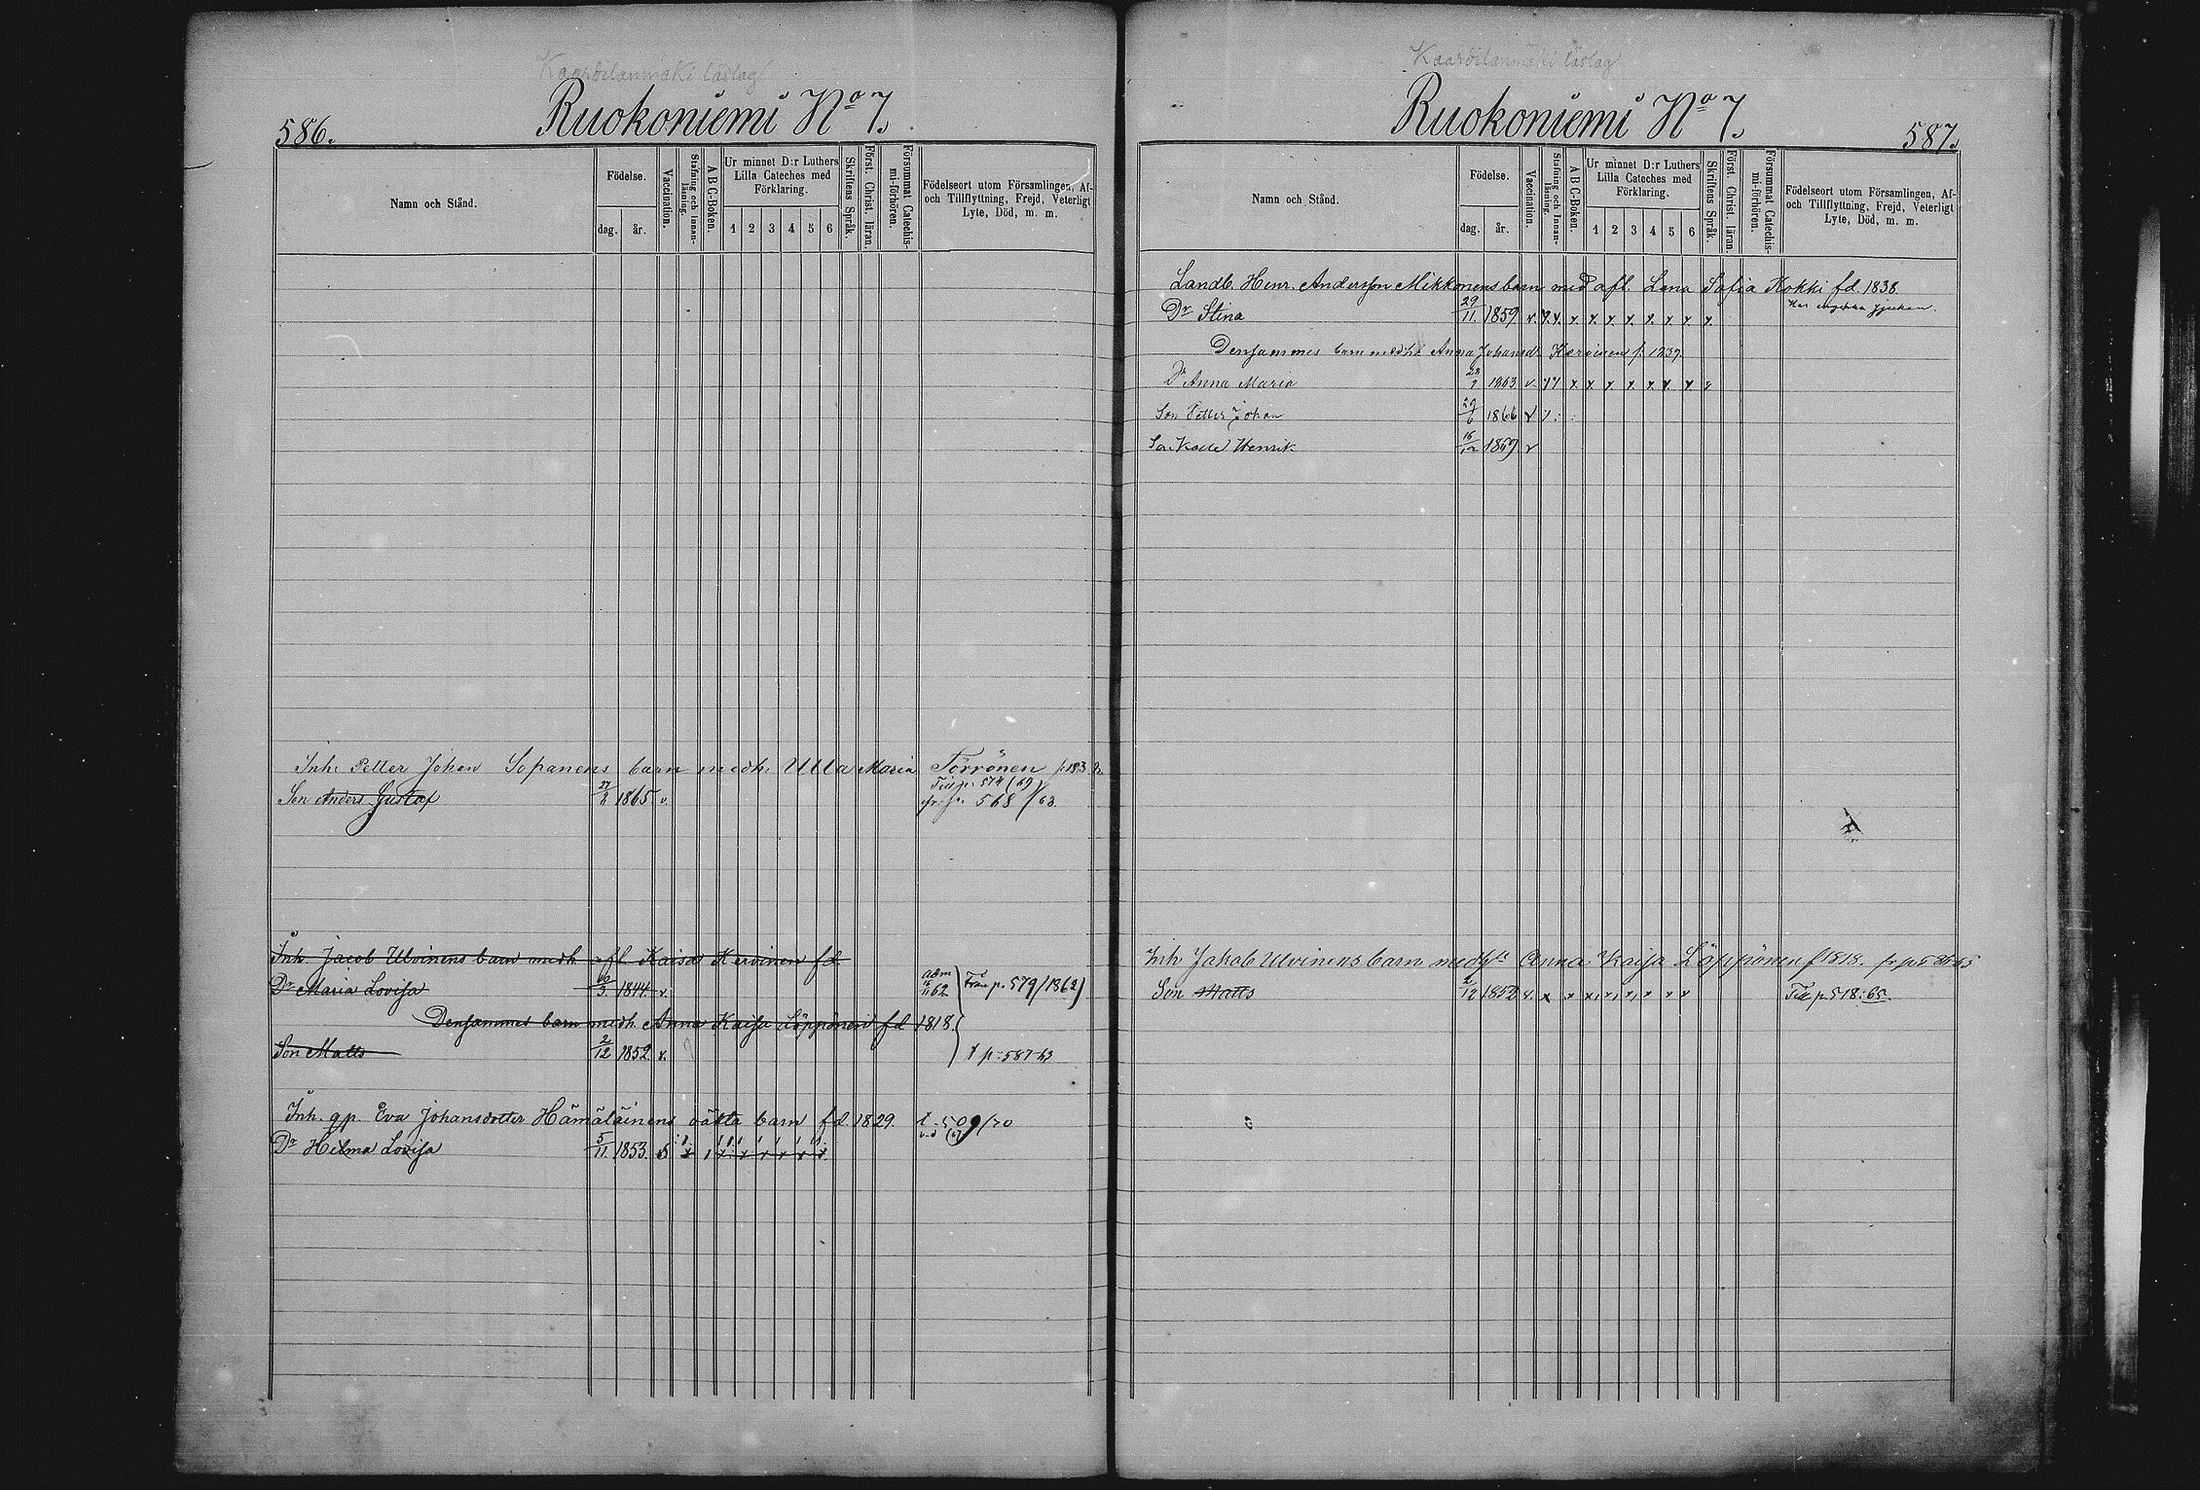 Kaardilanmäki läslag
Ruokoniemi No 7.
586.
Namn och Stånd.
Födelse.
dag. år.
Vaccination.
Stafning och Innanläsning.
A B C-Boken.
Ur minnet D:r Luthers Lilla Cateches med Förklaring.
1 2 3 4 5 6
Skriftens Språk.
Först. Christ. läran.
Försummat Catechismi-förhören.
Födelseort utom Församlingen, Af- och Tillflyttning, Frejd, Veterligt Lyte, Död, m. m.
Inh. Petter Johan Sopanens barn medh. Ulla Maria Törrönen
Till p. 574 (69)
Son Anders Gustaf 1865 v. 568/63
Inh. Jacob Ulvinens barn medh. afl. Kaisa Kervinen fd
Dr Maria Lovisa 1844. v. adm 62 Från p. 579/1862)
Densammes barn medh. Anna Kaisa Löppönen fd 1818.
Son Matts 2/12 1852 v. p. 587-63
Inh. gp. Eva Johansdotter Hämäläinens oäkta barn fd. 1829. 509/70
Dr Hilma Lovisa 5/11 1853.
Kaardilanmäki läslag
Ruokoniemi No 7.
587.
Namn och Stånd.
Födelse.
dag. år.
Vaccination.
Stafning och Innanläsning.
A B C-Boken.
Ur minnet D:r Luthers Lilla Cateches med Förklaring.
1 2 3 4 5 6
Skriftens Språk.
Först. Christ. läran.
Försummat Catechismi-förhören.
Födelseort utom Församlingen, Af- och Tillflyttning, Frejd, Veterligt Lyte, Död, m. m.
Landb. Henr. Andersson Mikkonens barn med afl. Lena Sofia Kokki fd. 1838.
Dr Stina 29/11 1859 v. x. x. x. x. x. x. x. x. x. x.
Densammes barn medh. Anna Johansdr Kervinen f.
Dr Anna Maria 1863 v. x x x x x x x x
Son Petter Johan 1866 v
Son Kalle Henrik 16/12 1869 v
Inh Jakob Ulvinens barn med h. Anna Kaija Löppönen f 1818.
Son Matts 2/12 1852 v. x x x x x x x x Till p. 518: 65.